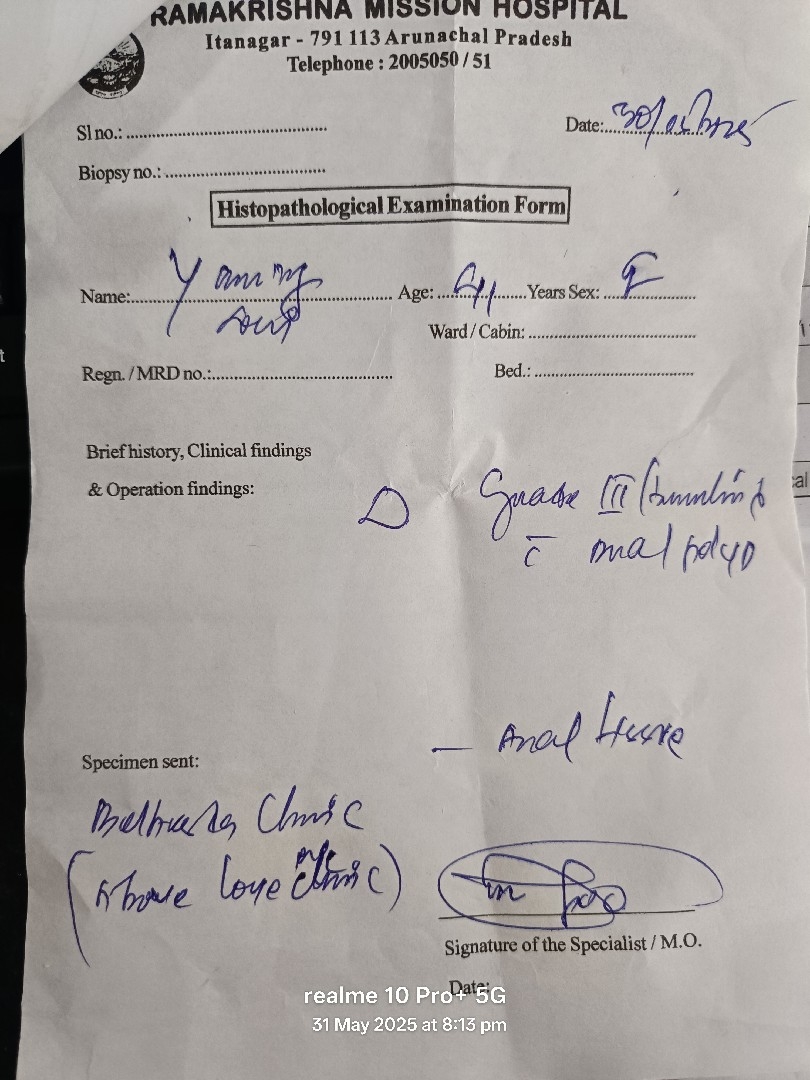 RAMAKRISHNA MISSION HOSPITAL
Itanagar - 791 113 Arunachal Pradesh
Telephone : 2005050 / 51
Sl no.:
Date: 30/
Biopsy no.:
Histopathological Examination Form
Name: Age: Years Sex: F
Ward / Cabin:
Regn. / MRD no.:
Bed.:
Brief history, Clinical findings
& Operation findings:
Grade III
c̄ anal polyp
— Anal
Specimen sent:
Clinic
(Above Clinic)
Signature of the Specialist / M.O.
Date:
realme 10 Pro+ 5G
31 May 2025 at 8:13 pm